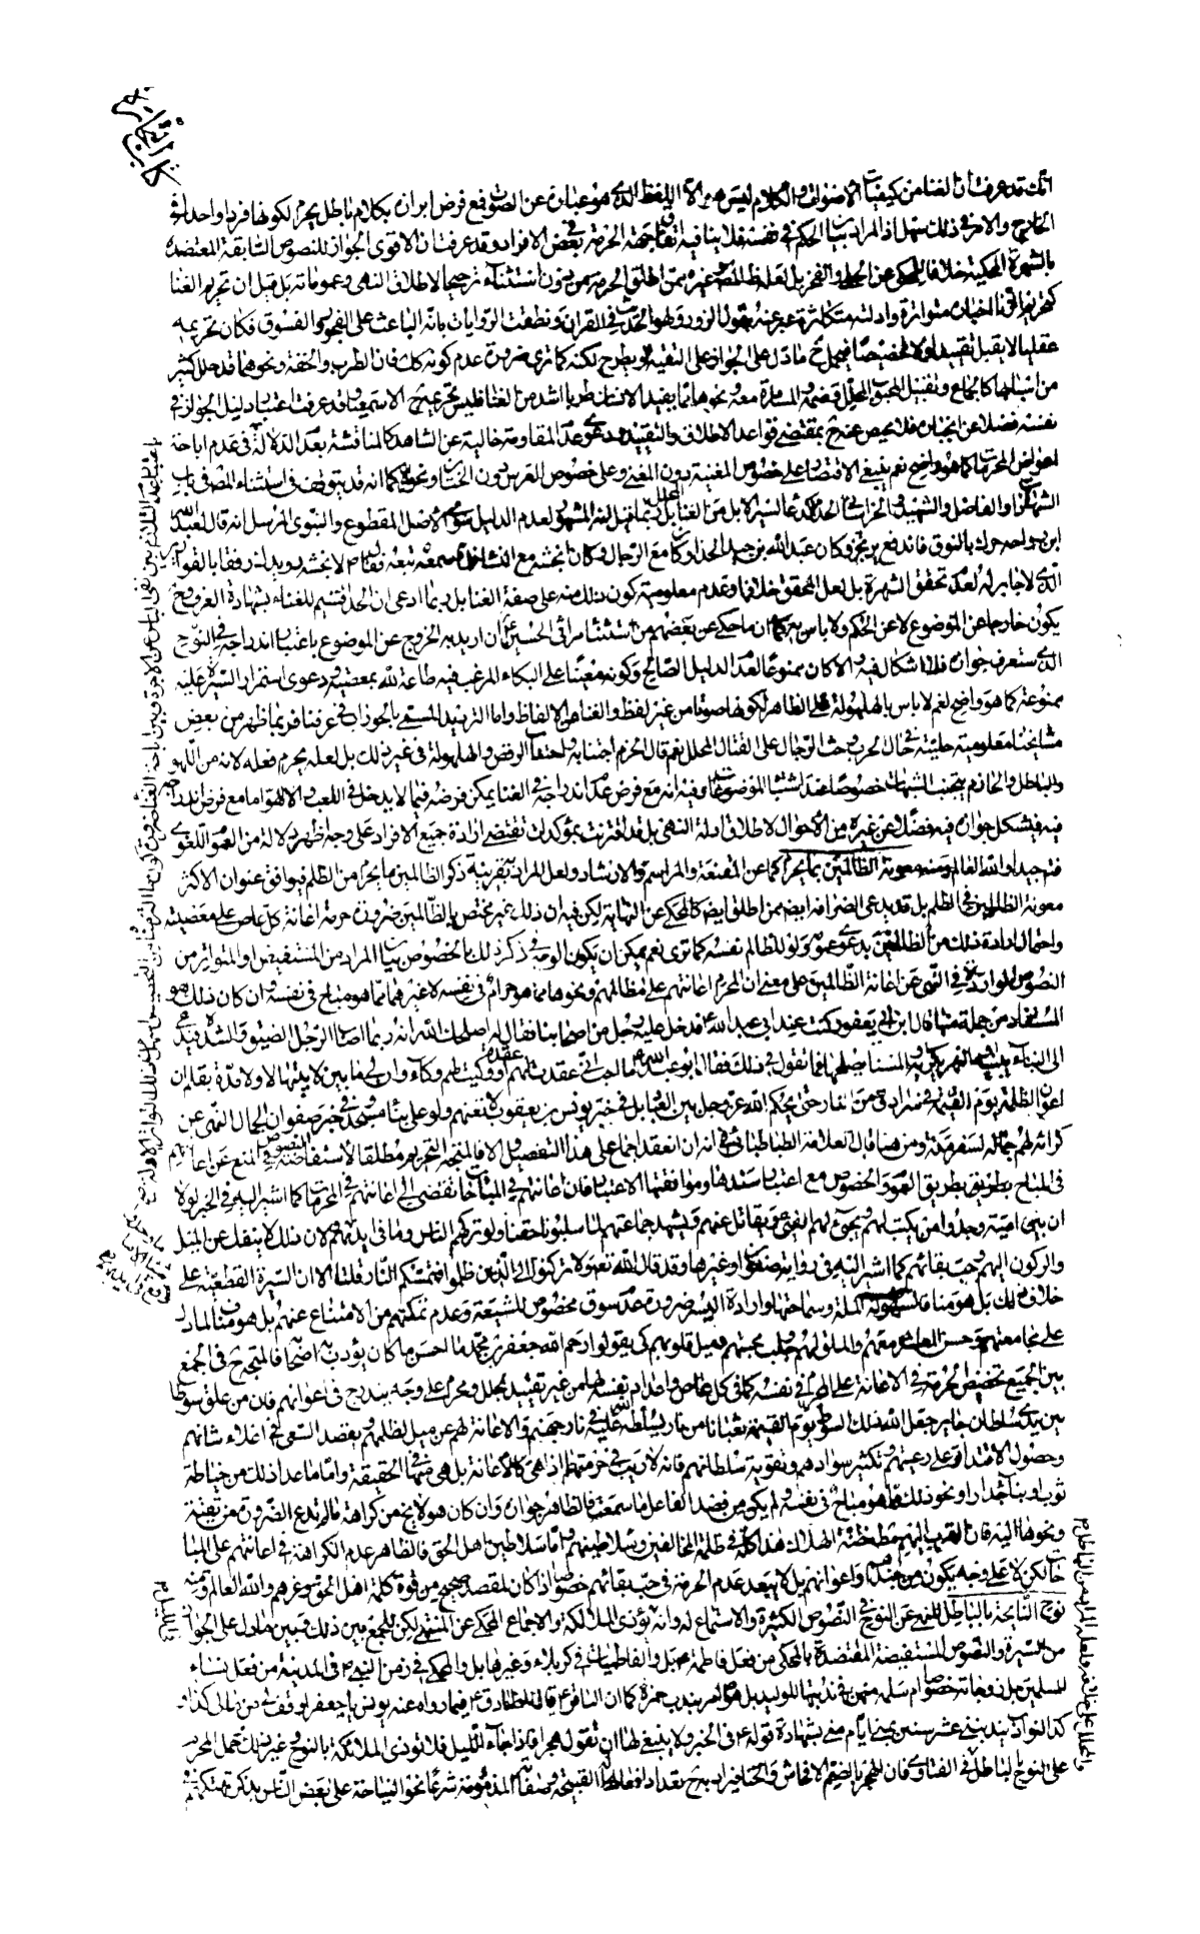 انك قد عرفت ان الغنا من كيفيات الاصوات والكلام ليس هو الا اللفظ الذى هو عبارة عن الصوت فمع فرض ايران بكلام باطل يحرم لكونها فردا واحدا في
الخارج والامر في ذلك سهل اذ المراد بيان الحكم في نفسه فلا ينافيه بقاء جهة الحرمة في بعض الافراد وقد عرفت ان الاقوى الجواز للنصوص السابقة المعتضدة
بالشهرة المحكية خلافا للمحكي عن الحلي والفخر بل لعله ظاهر غيره ممن اطلق الحرمة من دون استثناء ترجيحا لاطلاق النهى وعموماته بل قيل ان تحريم الغنا
كتحريم الزنا اخباره متواترة وادلته متكاثرة عبر عنه بقول الزور ولهو الحديث في القران ونطقت الروايات بانه الباعث على الفجور والفسوق فكان تحريمه
عقليا لا يقبل تقييدا ولا تخصيصا فيحمل ح ما دل على الجواز على التقية او يطرح لكنه كما ترى ضرورة عدم كونه كذلك فان الطرب والخفة ونحوهما قد حلل كثير
من اسبابها كالجماع وتقبيل المحبوب المحلل وضمه والمسامرة معه ونحوها مما يفيد الانسان طربا اشد من الغنا فليس تحريمه ح الا سمعيا وقد عرفت اعتبار دليل الجواز في
نفسه فضلا عن انجباره فلا محيص عنه ح بمقتضى قواعد الاطلاق والتقييد ودعوى عدم المقاومة خالية عن الشاهد كالمناقشة بعدم الدلالة في عدم اباحة
عوض المحرمات كما هو واضح نعم ينبغي الاقتصار على خصوص المغنية دون المغني وعلى خصوص العرس دون الختان ونحوه كما انه قد يتوقف في استثناء المصنف في باب
الشهادات والفاضل والشهيد والخراساني الحداء لسير الابل من الغنا بل ربما قيل انه المشهور لعدم الدليل سوى الاصل المقطوع والنبوي المرسل انه قال لعبد الله
ابن رواحة حرك بالنوق فاندفع يرتجز وكان عبد الله جيد الحداء وكان مع الرجال وكان انجشة مع النساء فلما سمعه تبعه فقال ص لانجشة رويدك رفقا بالقوارير
الذى لا جابر له لعدم تحقق الشهرة بل لعل المحقق خلافها وعدم معلومية كون ذلك منه على صفة الغنا بل ربما ادعى ان الحداء قسيم للغناء بشهادة العرف وح
يكون خارجا عن الموضوع لا عن الحكم ولا باس به كما ان ما حكى عن بعضهم من استثناء مراثي الحسين ع ان اريد به الخروج عن الموضوع باعتبار اندراجه في النوح
الذى ستعرف جوازه فلا اشكال فيه والا كان ممنوعا لعدم الدليل الصالح وكونه معينا على البكاء المرغب فيه طاعة لله بمعصيته ودعوى استمرار السيرة عليه
ممنوعة كما هو واضح نعم لا باس بالهلهولة على الظاهر لكونها صوتا من غير لفظ والغنا من الالفاظ واما الترديد المسمى بالحوراب في عرفنا فربما ظهر من بعض
مشايخنا معلومية حليته في حال الحرب وحث الرجال على القتال المحلل نعم قال الحزم اجتنابه واجتناب الرقص والهلهولة في غير ذلك بل لعله يحرم فعله لانه من اللهو
والباطل والحازم يتجنب الشبهات خصوصا عند اشتباه الموضوعات وفيه انه مع فرض عدم اندراجه في الغنا يمكن فرضه فيما لا يدخل في اللعب واللهو اما مع فرض اندراجه
فيه فيشكل جوازه فيه فضلا عن غيره من الاحوال لاطلاق ادلة النهى بل قد اقترنت بمؤكدات تقتضي ارادة جميع الافراد على وجه اظهر دلالة من العموم اللغوي
فتح جيدا والله العالم ومنه معونة الظالمين بما يحرم كما عن المقنعة والمراسم والارشاد ولعل المراد به بقرينة ذكر الظالمين ما يحرم من الظلم فيوافق عنوان الاكثر
معونة الظالمين في الظلم بل قد يدعى انصرافه ايضا ممن اطلق ايضا كالمحكي عن النهاية لكن فيه ان ذلك غير مختص بالظالمين ضرورة حرمة اعانة كل عاص على معصيته
واحتمال ارادة ذلك من الظالمين بدعوى عمومه ولو للظالم نفسه كما ترى نعم يمكن ان يكون الوجه في ذكر ذلك بالخصوص بيان المراد من المستفيض او المتواتر من
النصوص الواردة في النهى عن اعانة الظالمين على معنى ان المحرم اعانتهم على مظالمهم ونحوها مما هو حرام في نفسه لا غير فما هو مباح في نفسه وان كان ذلك هو
المستفاد من جملة منها قال ابن ابي يعفور كنت عند ابي عبد الله ع فدخل عليه رجل من اصحابنا فقال له اصلحك الله انه ربما اصاب الرجل الضيق والشدة فيدعى
الى البناء يبنيه او النهر يكريه او المسناة يصلحها فما تقول في ذلك فقال ابو عبد الله ع ما احب اني عقدت لهم عقدة او وكيت لهم وكاء وان لي ما بين لابتيها لا ولا مدة بقلم ان
اعوان الظلمة يوم القيمة في سرادق من نار حتى يحكم الله عز وجل بين العباد بل في خبر يونس بن يعقوب لا تعنهم ولو على بناء مسجد وفي خبر صفوان الجمال النهى عن
كرائه لهم جماله لسفر مكة ومن هنا قال العلامة الطباطبائي في انه ان انعقد اجماع على هذا التفصيل والا فالمتجه التحريم مطلقا لاستفاضة النصوص في المنع عن اعانتهم
في المباح بطريق العموم والخصوص مع اعتبار سندها وموافقتها الاعتبار فان اعانتهم في المباحات تفضي الى اعانتهم في المحرمات كما اشير اليه في الخبر لولا
ان بني امية وجدوا من يكتب لهم ويجبي لهم الفيء ويقاتل عنهم ويشهد جماعتهم لما سلبونا حقنا ولو تركهم الناس وما في ايديهم لان ذلك لا ينفك عن الميل
والركون اليهم وحب بقائهم كما اشير اليه في رواية صفوان وغيرها وقد قال الله تعم ولا تركنوا الى الذين ظلموا فتمسكم النار قلت الا ان السيرة القطعية على
خلاف ذلك بل هو مناف لسهولة الملة وسماحتها وارادة اليسر ضرورة عدم سوق مخصوص للشيعة وعدم تمكنهم من الامتناع عنهم بل هو مناف لما دل
على مجامعتهم وحسن المعاشرة معهم والملق لهم وجلب محبتهم وميل قلوبهم كي يقولوا رحم الله جعفر بن محمد ما احسن ما كان يؤدب به اصحابه فالمتجه ح في الجمع
بين الجميع تخصيص الحرمة في الاعانة على المحرم في نفسه كما في كل عاص واعداد نفسه لهم من غير تقييد بمحلل ومحرم على وجه يندرج في اعوانهم فان من علق سوطا
بين يدى سلطان جاير جعل الله ذلك السوط يوم القيمة ثعبانا من نار يسلطه الله عليه في نار جهنم والاعانة لهم عن ميل لظلمهم وبقصد السعي في اعلاء شانهم
وحصول الاقتدار على رعيتهم وتكثير سوادهم وتقوية سلطانهم فانه لا ريب في حرمتها اذ هي كالاعانة بل هي منها في الحقيقة واما ما عدا ذلك من خياطة
ثوب او بناء جدار او نحو ذلك مما هو مباح في نفسه ولم يكن من قصد الفاعل ما سمعت فالظاهر جوازه وان كان هو لا يخ من كراهة ما لم تدع الضرورة من تقية
ونحوها اليه فان القرب اليهم مظنة الهلاك هذا كله في ظلمة المخالفين وسلاطينهم واما سلاطين اهل الحق فالظاهر عدم الكراهة في اعانتهم على المباحات
لكن لا على وجه يكون من جندهم واعوانهم بل لا يبعد عدم الحرمة في حب بقائهم خصوصا اذا كان لمقصد صحيح من قوة كلمة اهل الحق وعزهم والله العالم ومنه
نوح النايحة بالباطل للنهى عن النوح في النصوص الكثيرة والاستماع له وانه يؤذى الملائكة والاجماع المحكي عن المنتهى لكن الجمع بين ذلك وبين ما دل على الجواز
من السيرة والنصوص المستفيضة المعتضدة بالمحكي من فعل فاطمة ع بل والفاطميات في كربلاء وغيرها بل والمحكي في زمن النبي ص في المدينة من فعل نساء
المسلمين بل زوجاته خصوصا ام سلمة منهن في ندبتها للوليد بل هو امر بندب حمزة كما ان الباقر ع قال للصادق ع فيما رواه عنه يونس يا جعفر اوقف لي من مالي كذا و
كذا لنوادب يندبنني عشر سنين بمنى ايام منى بشهادة قوله ع في الخبر ولا ينبغي لها ان تقول هجرا فاذا جاء الليل فلا تؤذى الملائكة بالنوح وغير ذلك حمل المحرم
على النوح بالباطل في الفتاوى فان الهجر بالضم الافحاش والخنا فيراد به ح تعداد افعاله القبيحة وصفاته المذمومة شرعا نحو النياحة على بعض الناس بذكر تهتكه